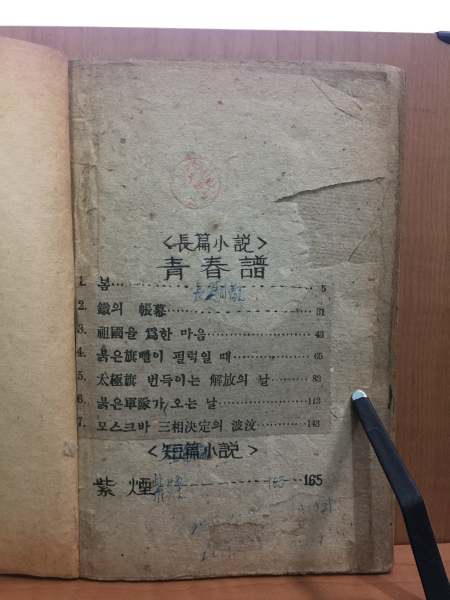 <長篇小説>
青春譜
1. 봄 5
長篇小說
2. 鐵의 帳幕 31
3. 祖國을 爲한 마음 43
4. 붉은旗빨이 펄럭일 때 65
5. 太極旗 번득이는 解放의 날 83
6. 붉은軍隊가 오는 날 113
7. 모스크바 三相決定의 波汶 143
<短篇小説>
紫煙 165
165